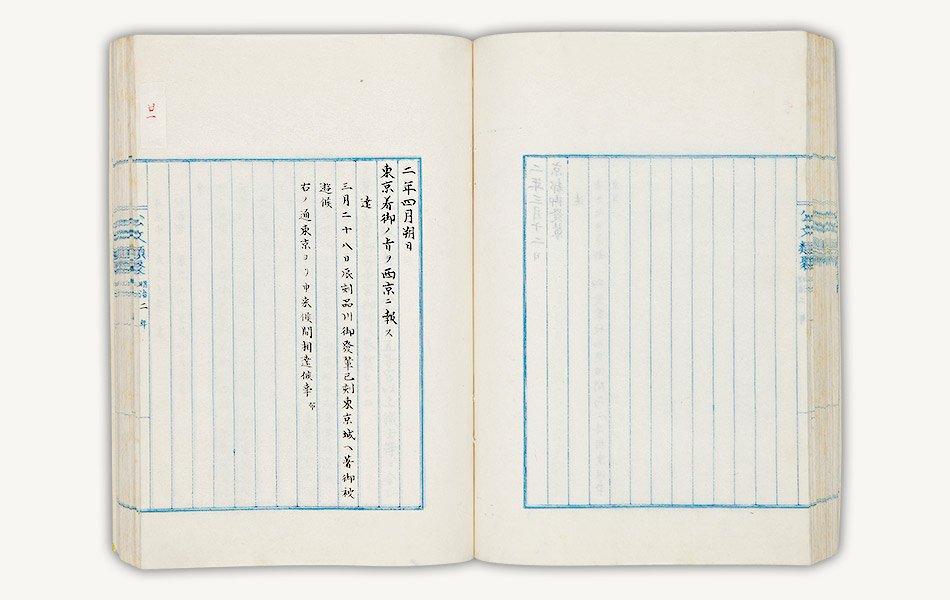 二年四月朔日
東京着御ノ旨ヲ西京ニ報ス
達
三月二十八日辰刻品川御發輦巳刻東京城ヘ著御被
遊候
右ノ通東京ヨリ申来候間相達候事
廿一